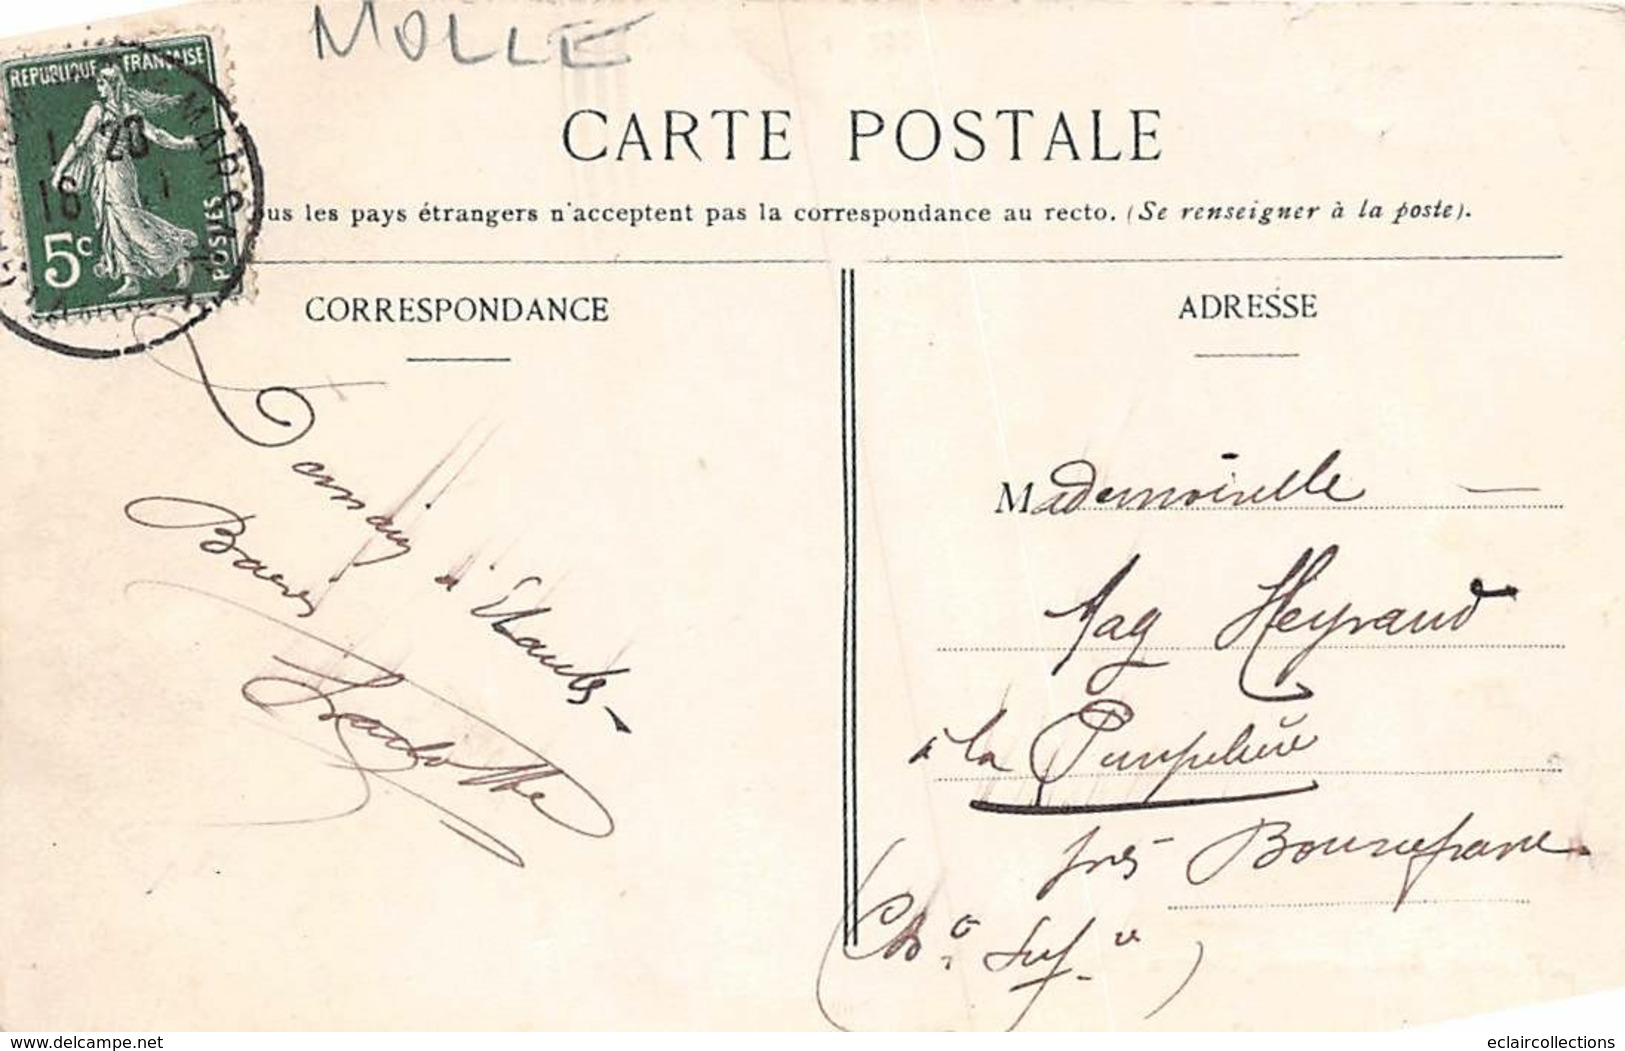 MOLLE
REPUBLIQUE FRANÇAISE
POSTES
5c
1 20
16
CARTE POSTALE
us les pays étrangers n'acceptent pas la correspondance au recto. (Se renseigner à la poste).
CORRESPONDANCE
ADRESSE
Bons
Mademoiselle
Mag Heyraud
à la
près Bourcefranc
(Chte Infre)
delcampe.net
eclaircollections